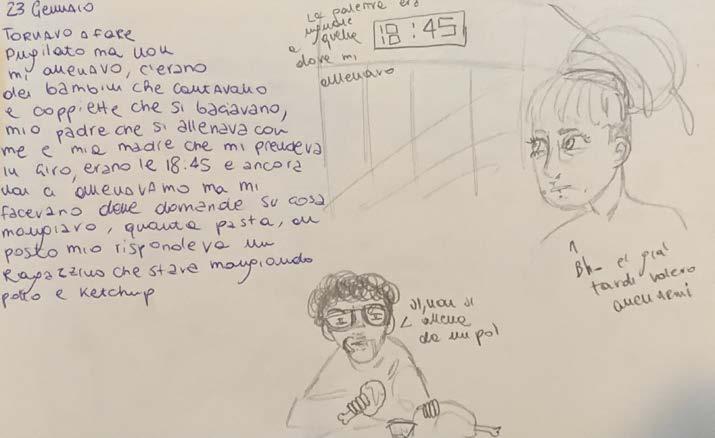 23 Gennaio
TORNAVO A FARE
Pugilato ma non
mi allenavo, c'erano
dei bambini che cantavano
e coppiette che si baciavano,
mio padre che si allenava con
me e mia madre che mi prendeva
in giro, erano le 18:45 e ancora
non ci allenavamo ma mi
facevano delle domande su cosa
mangiavo, quanta pasta, al
posto mio rispondeva un
Ragazzino che stava mangiando
pollo e Ketchup
La palestra era
uguale
a quella
dove mi
allenavo
18:45
è già
tardi volevo
allenarmi
si, non si
allena
da un po'